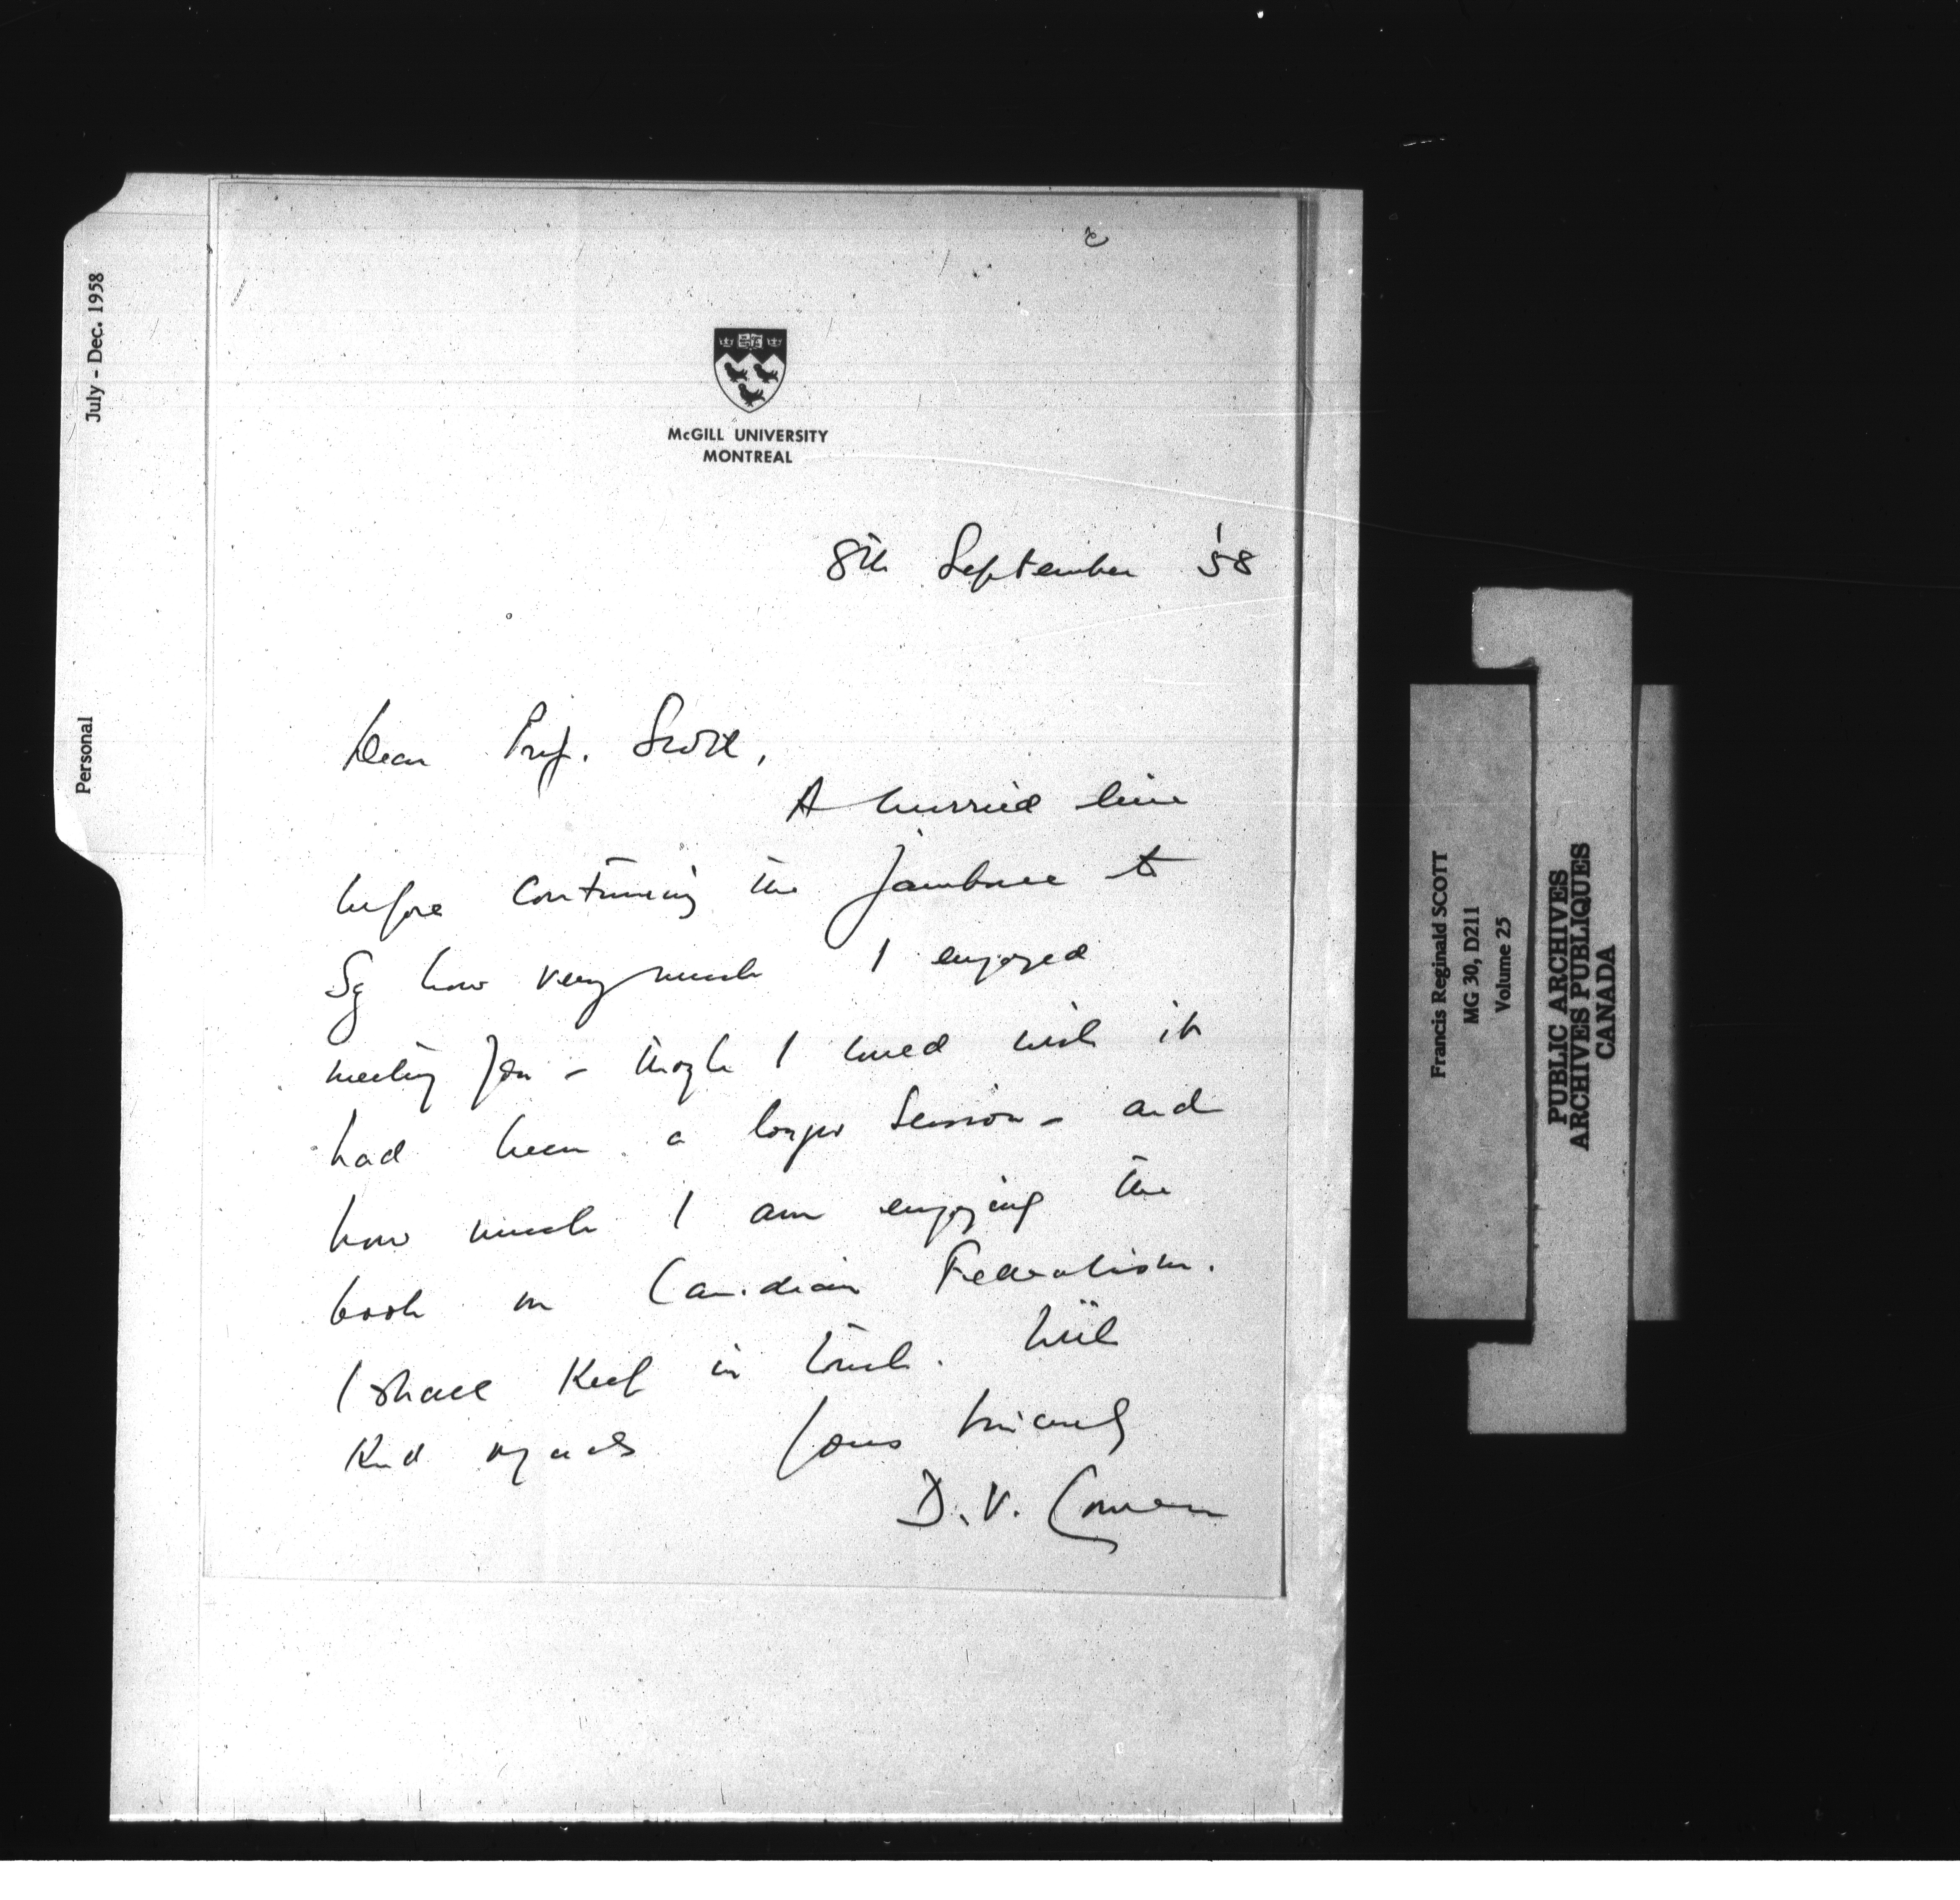 July - Dec. 1958
Personal
McGILL UNIVERSITY
MONTREAL
8th September '58
Dear Prof. Scott,
A hurried line
before continuing the jamboree to
Say how very much I enjoyed
meeting you - though I could wish it
had been a longer Session - and
how much I am enjoying the
book on Canadian Federalism.
I shall keep in touch. With
Kind regards Yours sincerely
D. V. Cowen
Francis Reginald SCOTT
MG 30, D211
Volume 25
PUBLIC ARCHIVES
ARCHIVES PUBLIQUES
CANADA